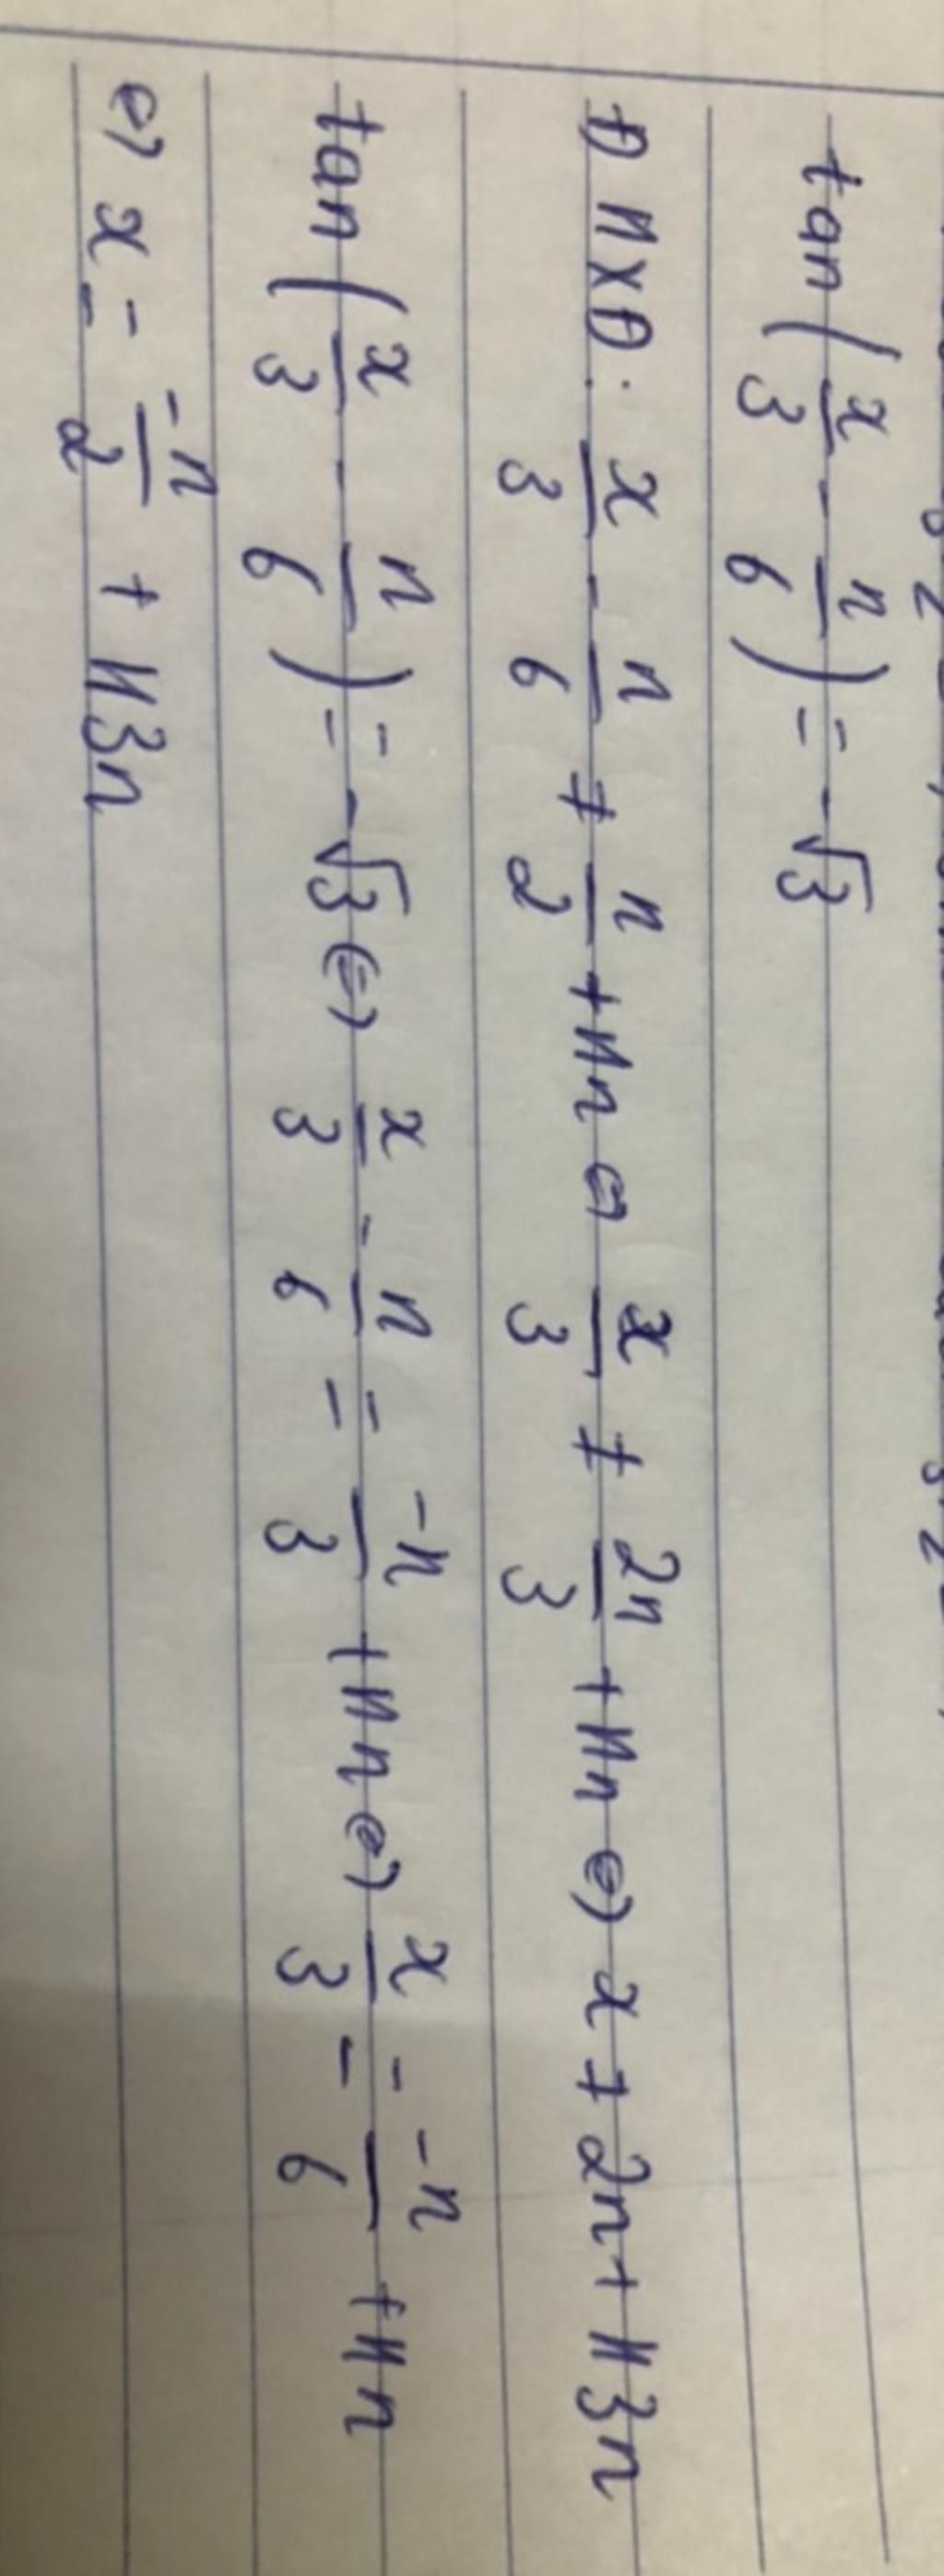 tan(x/3 - π/6) = -√3
Đ KXĐ: x/3 - π/6 ≠ π/2 + kπ ⇔ x/3 ≠ 2π/3 + kπ ⇔ x ≠ 2π + k3π
tan(x/3 - π/6) = -√3 ⇔ x/3 - π/6 = -π/3 + kπ ⇔ x/3 = -π/6 + kπ
⇔ x = -π/2 + k3π